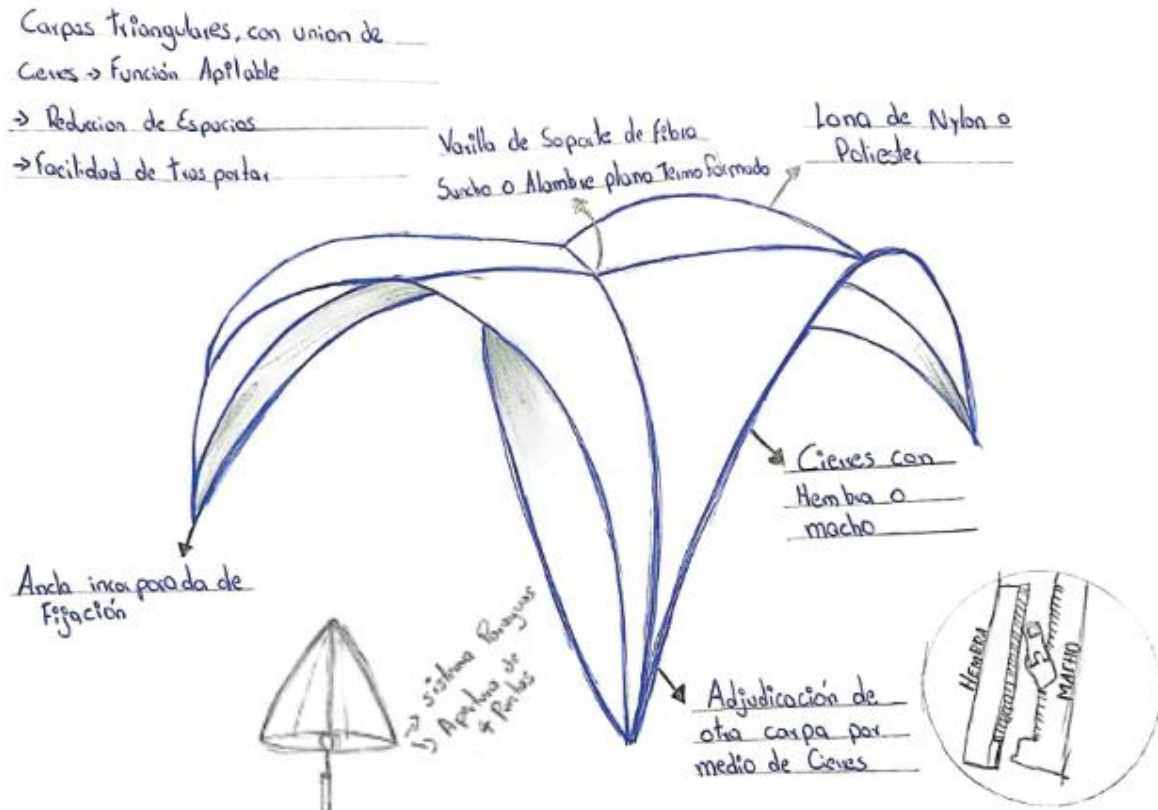 Carpas Triangulares, con union de
Cieres → Función Apilable
→ Reduccion de Espacios
→ Facilidad de trasportar
Varilla de Soporte de fibra
Suncho o Alambre plano Termo formado
Lona de Nylon o
Poliester
Cieres con
Hembra o
macho
Ancla incorporada de
Fijación
→ Sistema Paraguas
↳ Apertura de
4 Puntas
Adjudicación de
otra carpa por
medio de Cieres
HEMBRA
MACHO